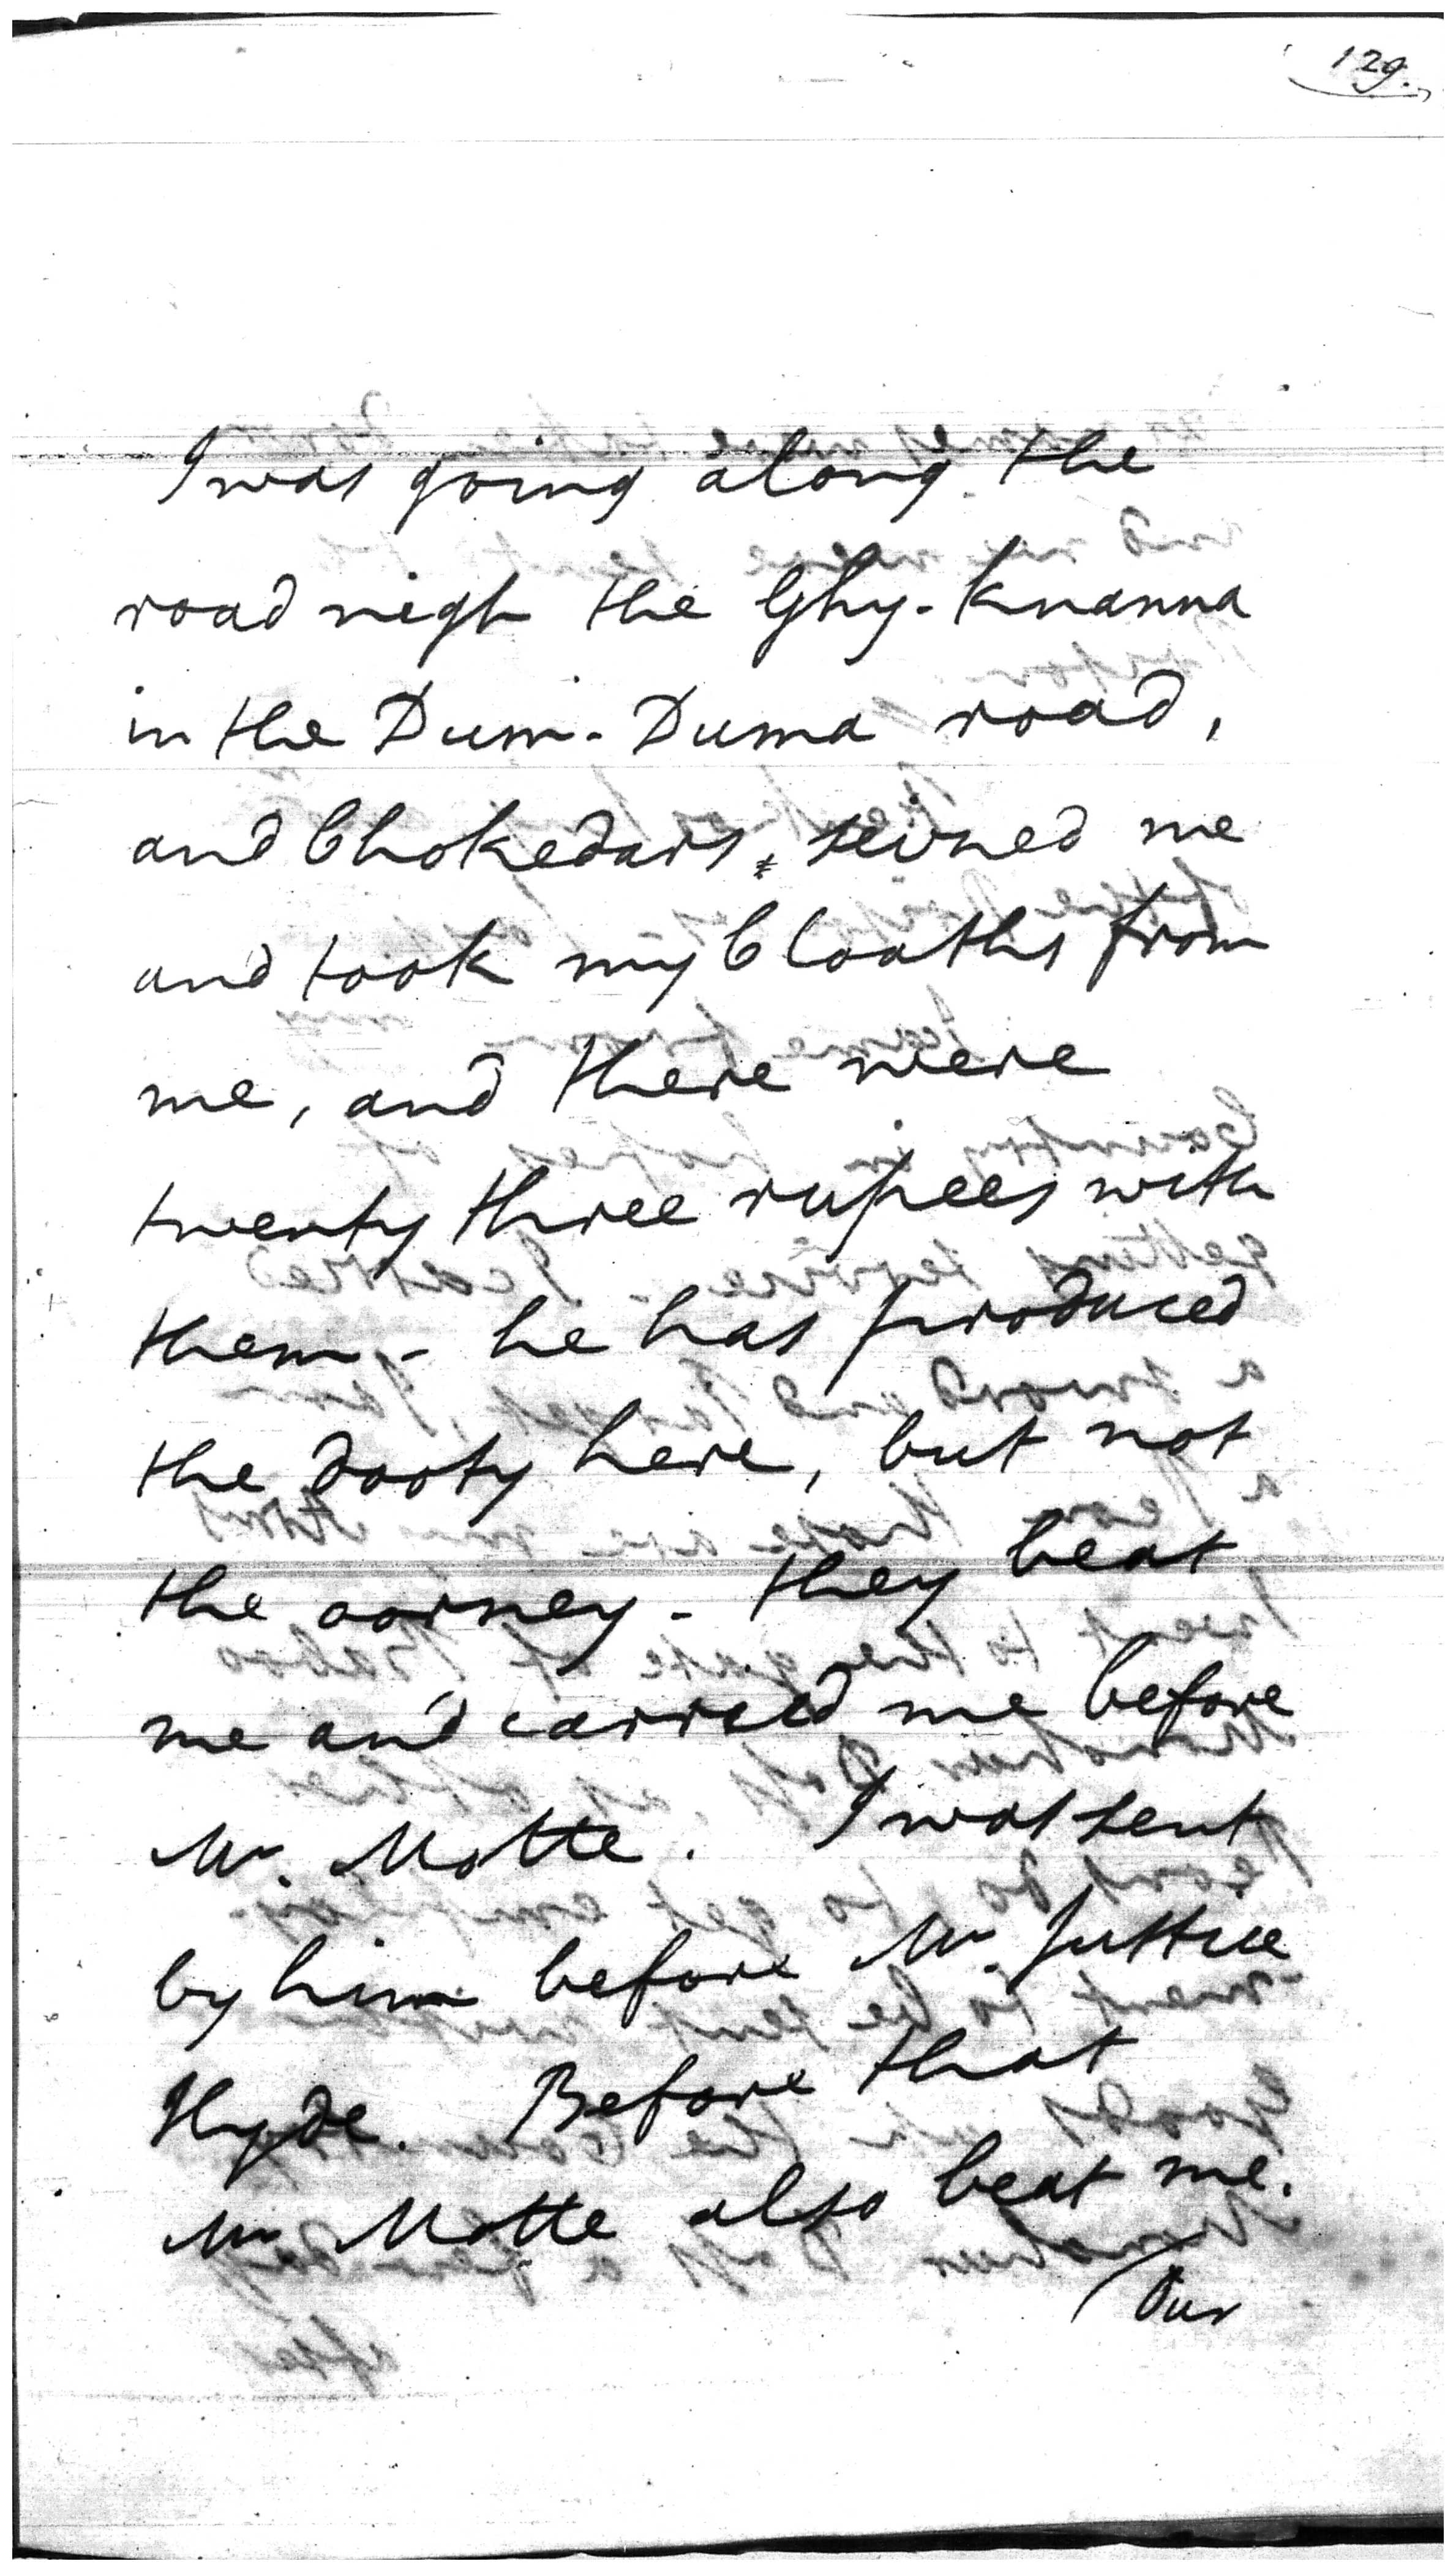 129.
I was going along the
road nigh the Ghy-Knanna
in the Dum-Duma road,
and Chokedars, seized me
and took my Cloaths from
me, and there were
twenty three rupees with
them - he has produced
the dooty here, but not
the oorney - they beat
me and carried me before
Mr. Motte. I was sent
by him before Mr. Justice
Hyde. Before that
Mr Motte also beat me.
Our